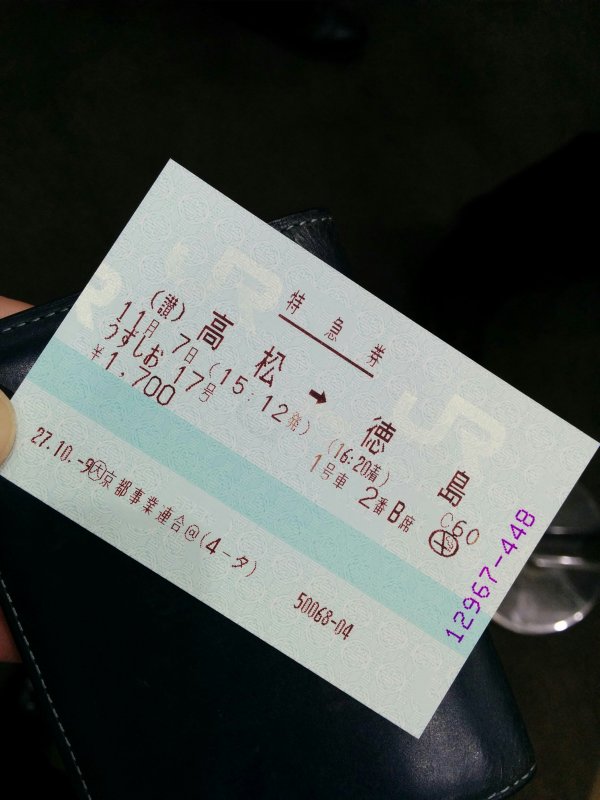 特急券
(讃)高松➡徳島
11月7日(15:12発) (16:20着) C60
うずしお17号 1号車 2番B席
¥1,700
27.10.-9 京都事業連合@(4-タ) 50068-04
12967-448
JR
JR